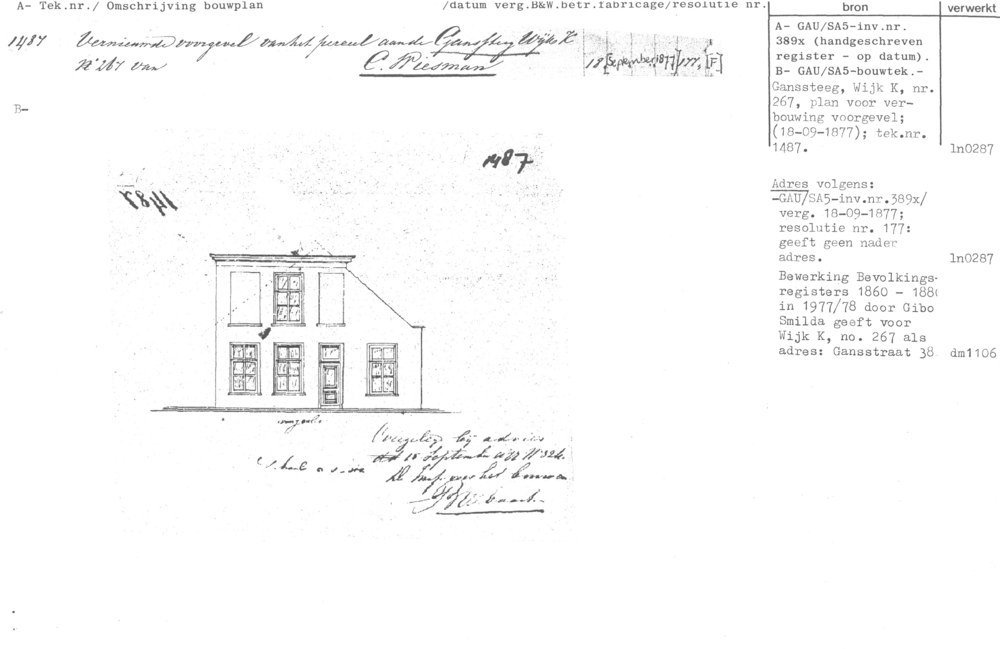 A- Tek.nr./ Omschrijving bouwplan /datum verg.B&W.betr.fabricage/resolutie nr.
bron
verwerkt
1487 Vernieuwde voorgevel van het perceel aan de Ganssteeg Wijk K
No 267 van C. Wiesman
18 [September 1877] 177, [F]
A- GAU/SA5-inv.nr.
389x (handgeschreven
register - op datum).
B- GAU/SA5-bouwtek.-
Ganssteeg, Wijk K, nr.
267, plan voor ver-
bouwing voorgevel;
(18-09-1877); tek.nr.
1487.
ln0287
B-
1487
1487
Adres volgens:
-GAU/SA5-inv.nr.389x/
verg. 18-09-1877;
resolutie nr. 177:
geeft geen nader
adres.
ln0287
Bewerking Bevolkings-
registers 1860 - 188
in 1977/78 door Gibo
Smilda geeft voor
Wijk K, no. 267 als
adres: Gansstraat 38
dm1106
voorgevel
bij advies
15 September No 324